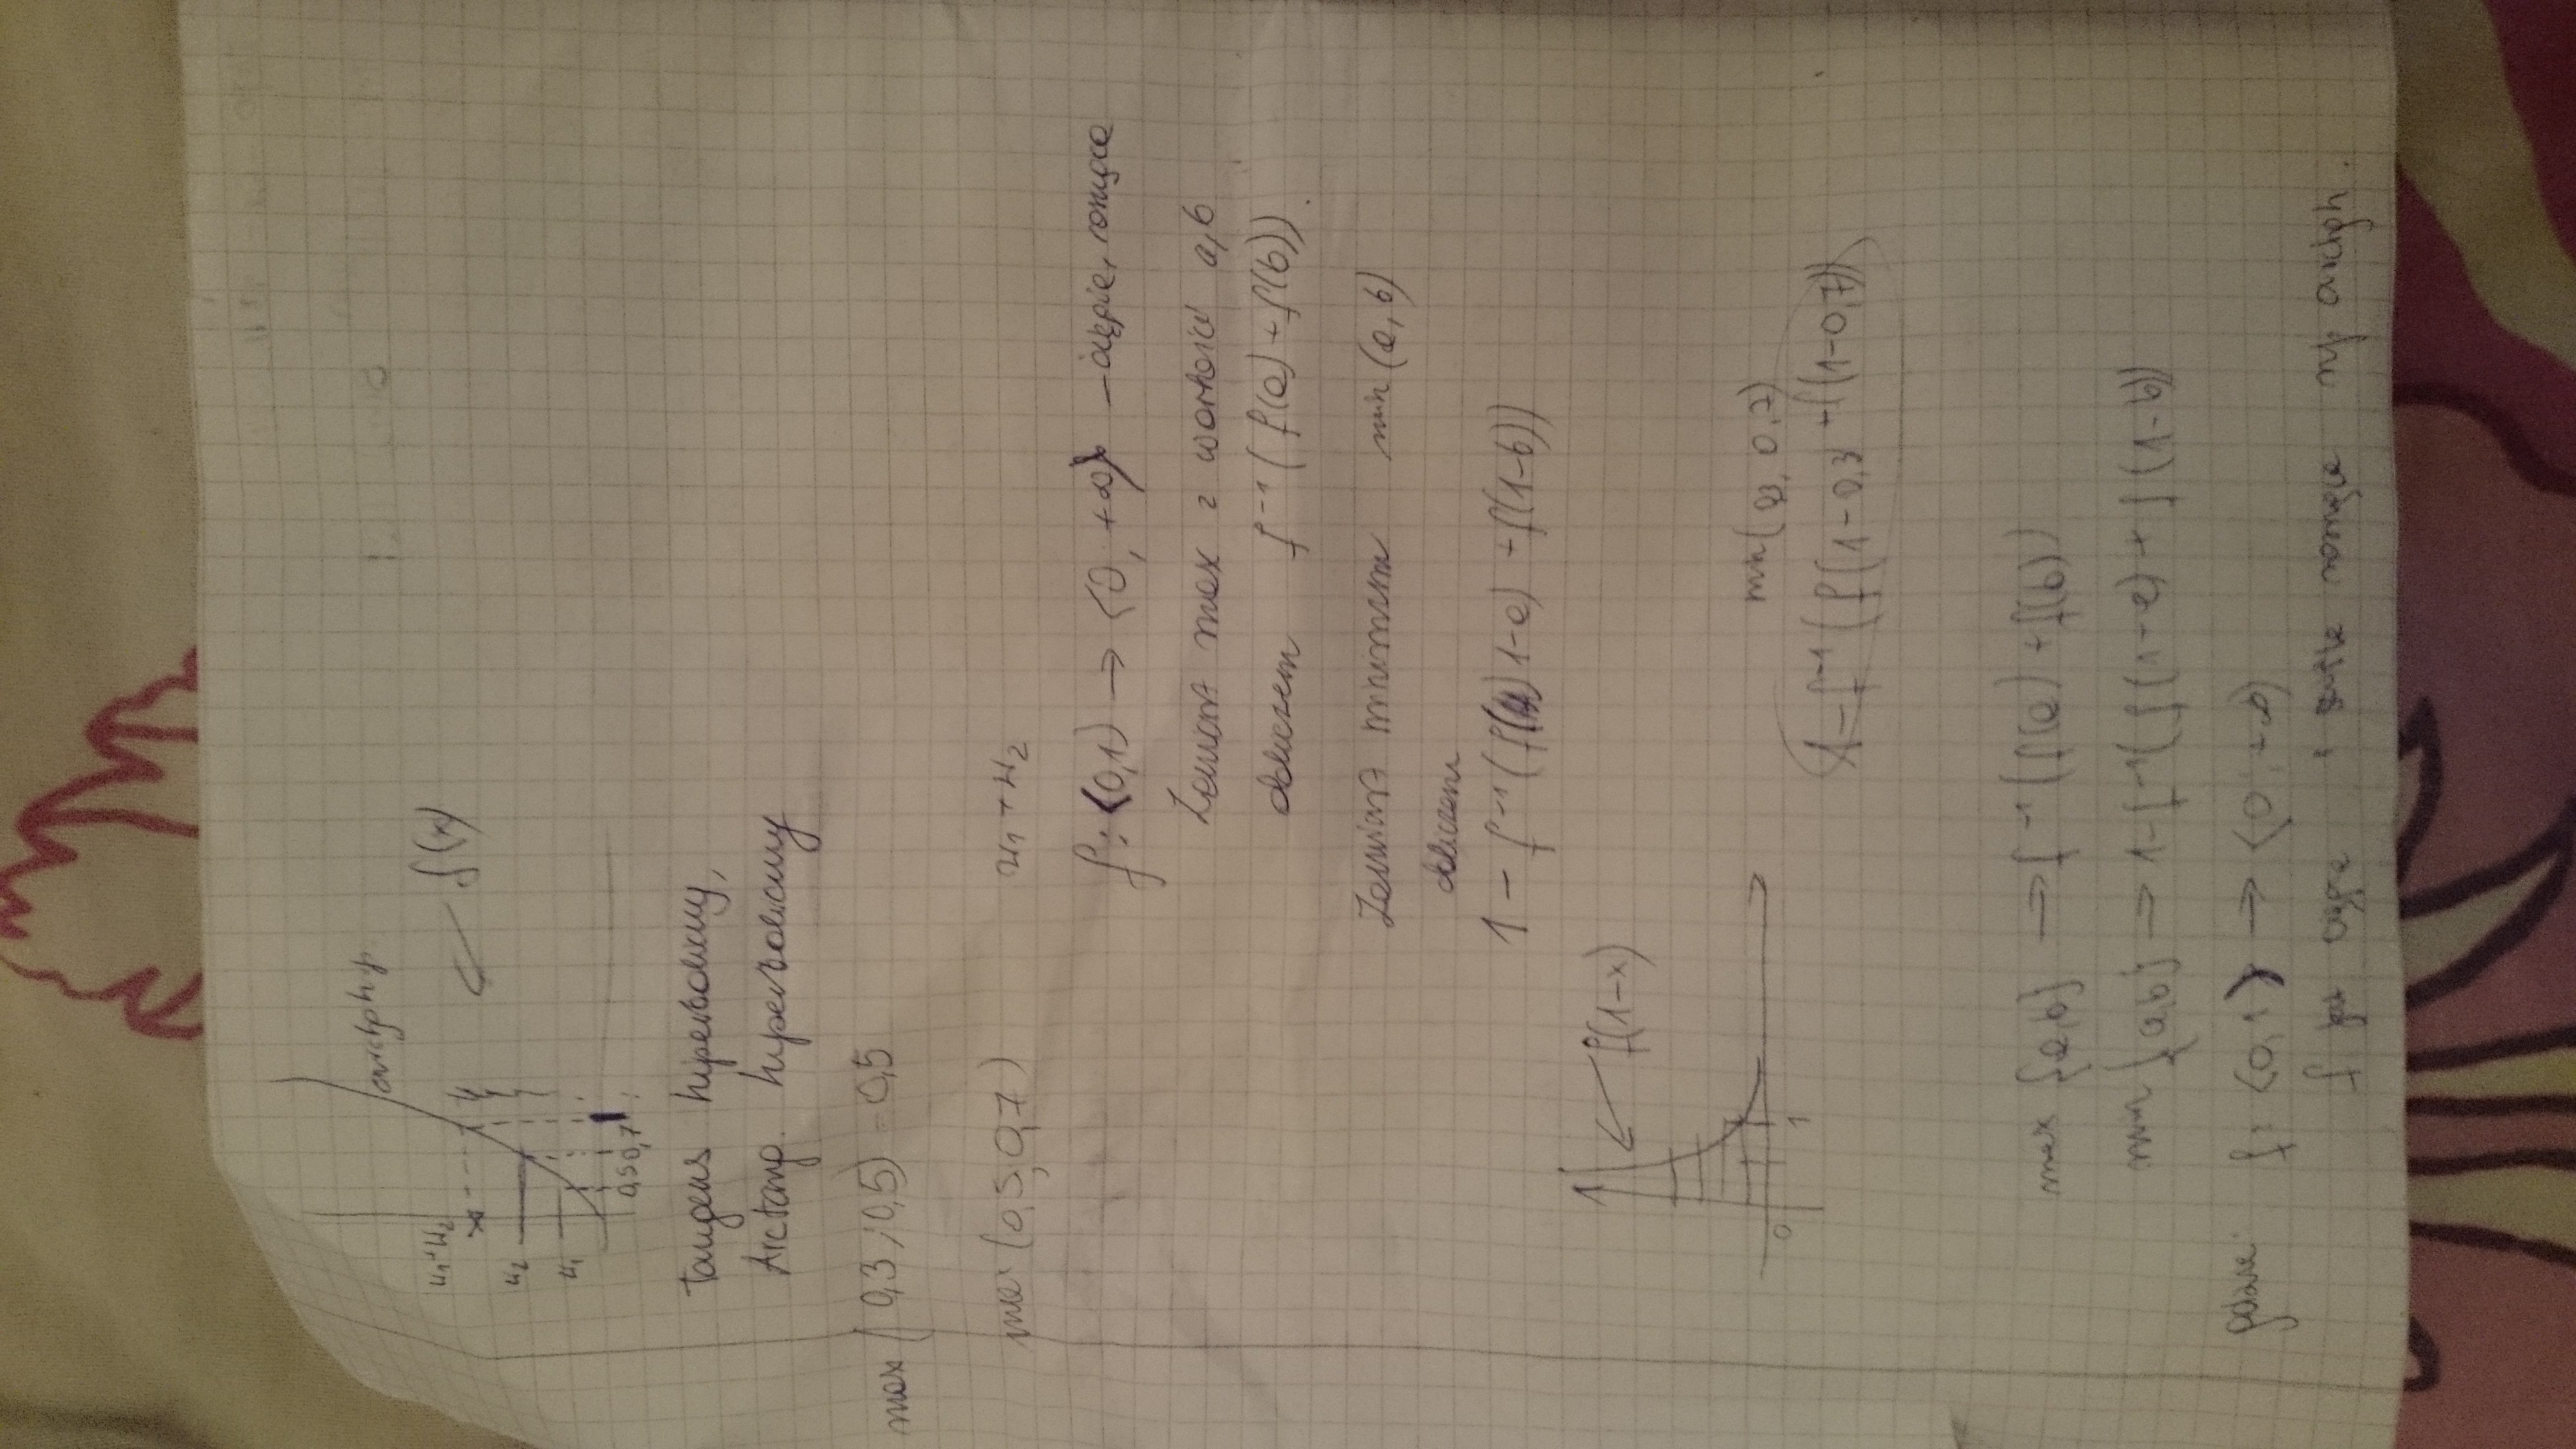 arctgh
u₁+u₂
u₂
u₁
0,5 0,7 1
f(x)
Tangens hiperboliczny,
Arctang. hiperboliczny
max (0,3; 0,5) = 0,5
max (0,5, 0,7)
u₁ + u₂
f: <0,1) → <0, +∞) – ciągłe, rosnące
Zamiast max z wartości a, b
obliczam f⁻¹(f(a) + f(b)).
Zamiast minimum min(a, b)
obliczam
1 - f⁻¹(f(1-a) + f(1-b))
1
f(1-x)
0
1
min(0,3, 0,7)
1 - f⁻¹(f(1-0,3 + f(1-0,7))
max {a,b} → f⁻¹(f(a) + f(b))
min {a,b} → 1 - f⁻¹(f(1-a) + f(1-b))
gdzie: f: <0,1) → <0, +∞)
f jest ciągłe i rosnące np arctgh.